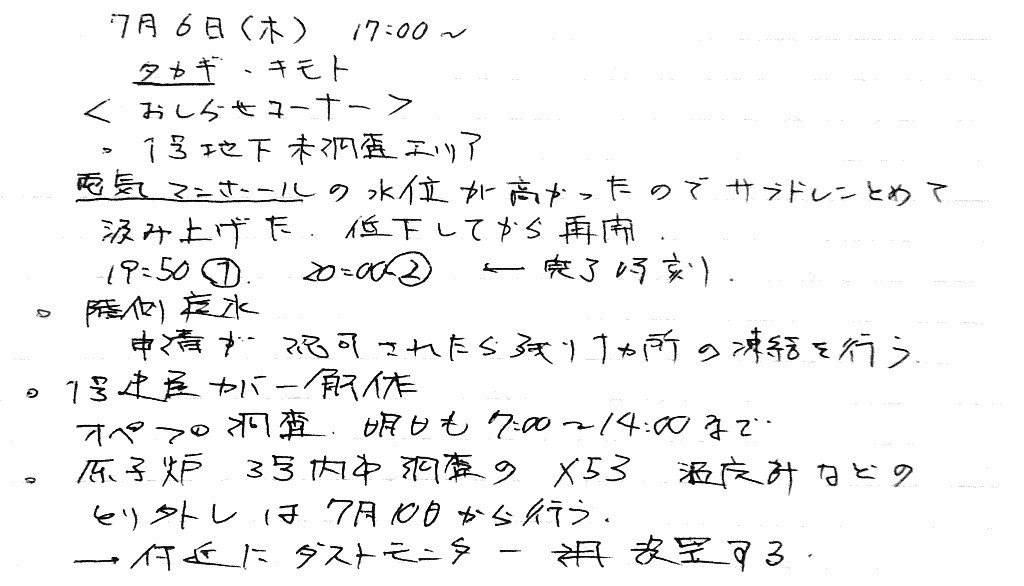 7月6日(木) 17:00～
タカギ・キモト
＜おしらせコーナー＞
。1号地下未調査エリア
電気マンホールの水位が高かったのでサブドレンとめて
汲み上げた.低下してから再開.
19:50① 20:00② ←完了時刻.
。陸側遮水
申請が認可されたら残り1カ所の凍結を行う
。1号建屋カバー解体
オペフロ調査.明日も7:00～14:00まで.
。原子炉 3号内部調査のX53 温度計などの
とりタトレは7月10日から行う.
→付近にダストモニター 設置する.